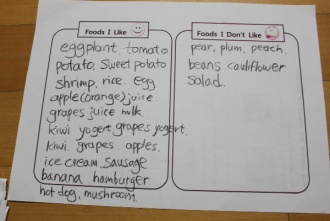 Foods I Like
eggplant. tomato
potato. Sweet potato
shrimp. rice. egg
apple(orange)juice.
grapes juice milk.
kiwi yogert grapes yogert.
kiwi. grapes. apples.
ice cream. sausage
banana hamburger
hot dog. mushroom.
Foods I Don't Like
pear, plum, peach.
beans cauliflower
salad.